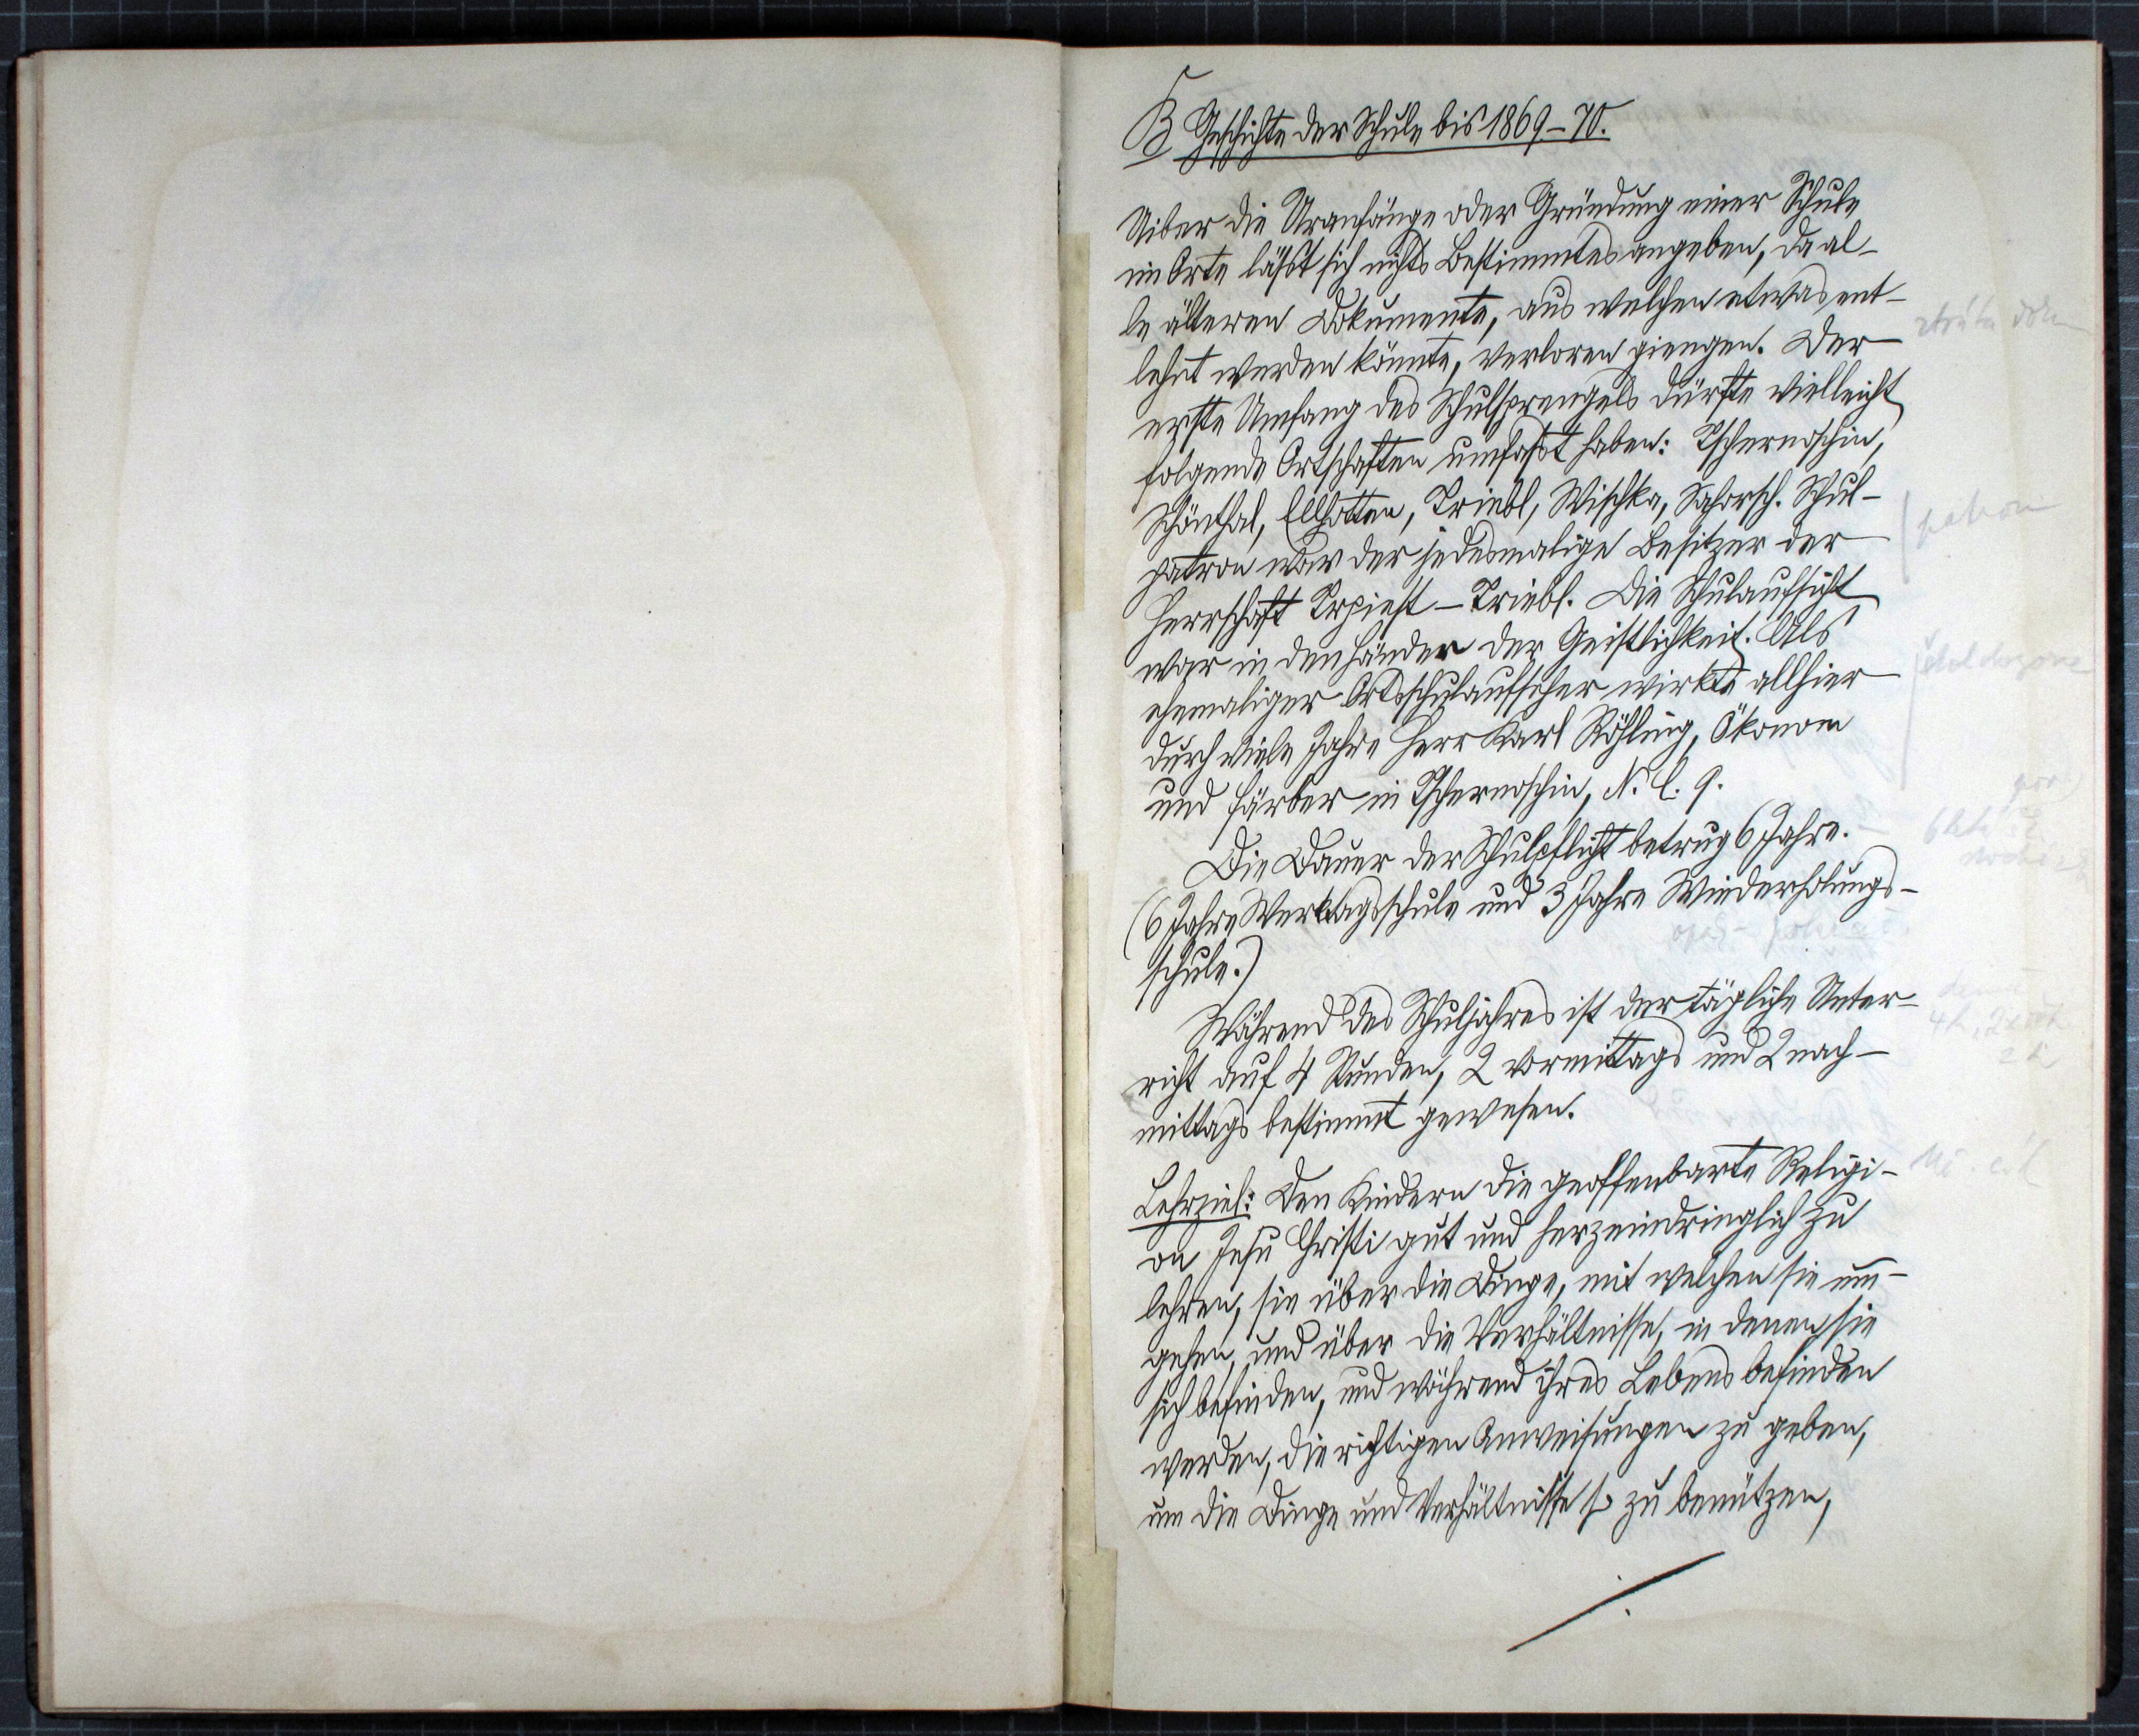 B Geschichte der Schule bis 1869–70.
Uiber die Uranfänge oder Gründung einer Schule
im Orte läßt sich nichts Bestimmtes angeben, da al-
le älteren Dokumente, aus welchen etwas ent-
lehnt werden könnte, verloren giengen. Der
erste Umfang des Schulsprengels dürfte vielleicht
folgende Ortschaften umfaßt haben: Tschernoschin,
Schönthal, Ellhotten, Triebl, Wischka, Sahorsch. Schul-
patron war der jedesmalige Besitzer der
Herrschaft Trpist – Triebl. Die Schulaufsicht
war in den Händen der Geistlichkeit. Als
ehemaliger Ortsschulaufseher wirkte allhier
durch viele Jahre Herr Karl Röhling, Ökonom
und Färber in Tschernoschin, N. C. 9.
Die Dauer der Schulpflicht betrug 6 Jahre.
(6 Jahre Werktagsschule und 3 Jahre Wiederholungs-
schule.)
Während des Schuljahres ist der tägliche Unter-
richt auf 4 Stunden, 2 vormittags und 2 nach-
mittags bestimmt gewesen.
Lehrziel: Den Kindern die geoffenbarte Religi-
on Jesu Christi gut und herzeindringlich zu
lehren, sie über die Dinge, mit welchen sie um-
gehen, und über die Verhältnisse, in denen sie
sich befinden, und während ihres Lebens befinden
werden, die richtigen Anweisungen zu geben,
um die Dinge und Verhältnisse so zu benützen,
ztráta dok
patron